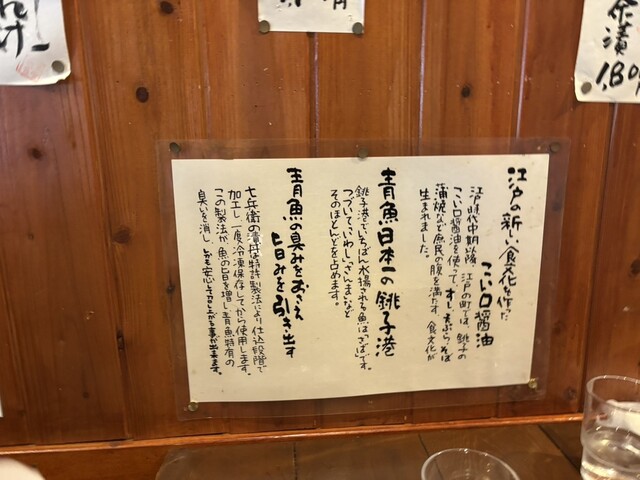 江戸の新しい食文化を作った
こい口醤油
江戸時代中期以降、江戸の町では、銚子の
こい口醤油を使って、すし・天ぷら・そば
蒲焼など庶民の腹を満たす食文化が
生まれました。
青魚日本一の銚子港
銚子港でいちばん水揚される魚は「さば」です。
つづいて、いわし、さんまなど
そのほとんどを占めます。
青魚の臭みをおさえ
旨みを引き出す
七兵衛の漬丼は特許製法により仕込段階で
加工し、一度冷凍保存してから使用します。
この製法が、魚の旨を増し青魚特有の
臭いを消し、しかも安心して召し上がる事が出来ます。
茶漬
1,180円